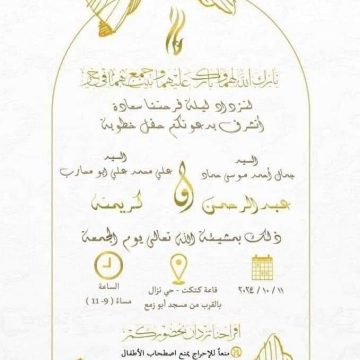 بارك الله لهما وبارك عليهما وجمع بينهما في خير
لتزداد ليلة فرحتنا سعادة
أتشرف بدعوتكم حفل خطوبة
السيد
جمال أحمد موسى حماد
السيد
علي محمد علي ابو محارب
عبدالرحمن
و
كريمته
ذلك بمشيئة الله تعالى يوم الجمعة
٢٠٢٤ / ١٠ / ١١
قاعة كتكت - حي نزال
بالقرب من مسجد أبو زمع
الساعة
مساءً (9 - 11)
افراحنا تزدان بحضوركم
منعاً للإحراج يمنع اصطحاب الأطفال